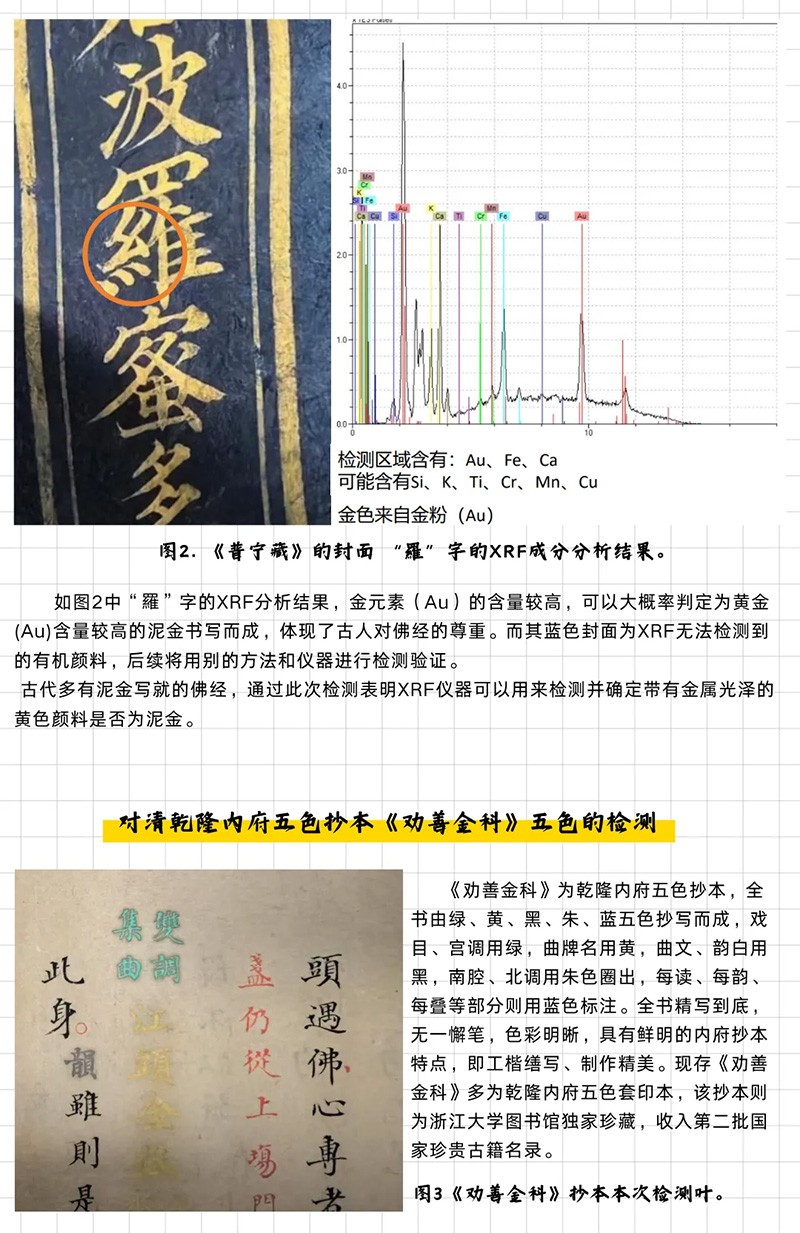 波羅蜜多
4.0
3.0
2.0
1.0
0.0
0
10
Mn
Cr
K
Si
Fe
Ti
Ca
Cu
Si
Au
K
Ca
Ti
Cr
Mn
Fe
Cu
Au
检测区域含有：Au、Fe、Ca
可能含有Si、K、Ti、Cr、Mn、Cu
金色来自金粉（Au）
图2.《普宁藏》的封面 “羅”字的XRF成分分析结果。
如图2中“羅”字的XRF分析结果，金元素（Au）的含量较高，可以大概率判定为黄金
(Au)含量较高的泥金书写而成，体现了古人对佛经的尊重。而其蓝色封面为XRF无法检测到
的有机颜料，后续将用别的方法和仪器进行检测验证。
古代多有泥金写就的佛经，通过此次检测表明XRF仪器可以用来检测并确定带有金属光泽的
黄色颜料是否为泥金。
对清乾隆内府五色抄本《劝善金科》五色的检测
頭遇佛心專者
盞仍從上場門
變調
集曲
江頭金
此身
韻雖則是
《劝善金科》为乾隆内府五色抄本，全
书由绿、黄、黑、朱、蓝五色抄写而成，戏
目、宫调用绿，曲牌名用黄，曲文、韵白用
黑，南腔、北调用朱色圈出，每读、每韵、
每叠等部分则用蓝色标注。全书精写到底，
无一懈笔，色彩明晰，具有鲜明的内府抄本
特点，即工楷缮写、制作精美。现存《劝善
金科》多为乾隆内府五色套印本，该抄本则
为浙江大学图书馆独家珍藏，收入第二批国
家珍贵古籍名录。
图3《劝善金科》抄本本次检测叶。